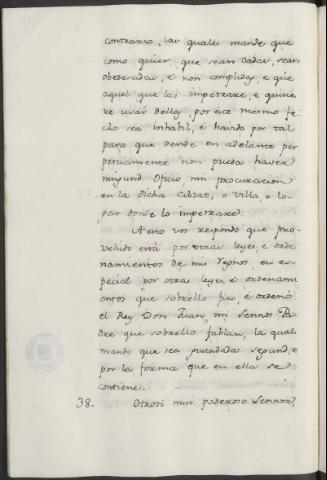 contrario, las quales mande que
como quier, que sean dadas, sean
obedecidas, é non complidas, e que
aquel que las impetrare, e quisie
re usar dellas, por ese mesmo fe
cho sea inhabil, é havido por tal
para que dende en adelante per
petuamente non pueda haver
ningund Oficio nin procuracion
en la dicha Cibdat, o Villa, o lo
gar donde lo impetrare.
A esto vos respondo que pro
vehido está por otras leyes, e orde
namientos de mis regnos en es
pecial por otras leyes, é ordenami
entos que sobrello fizo, é ordenó
el Rey Don Juan, mi Sennor Pa
dre que sobrello fablan, la qual
mando que sea guardada segund, e
por la forma que en ella se
contiene.
38. Otrosi mui poderoso Sennor,